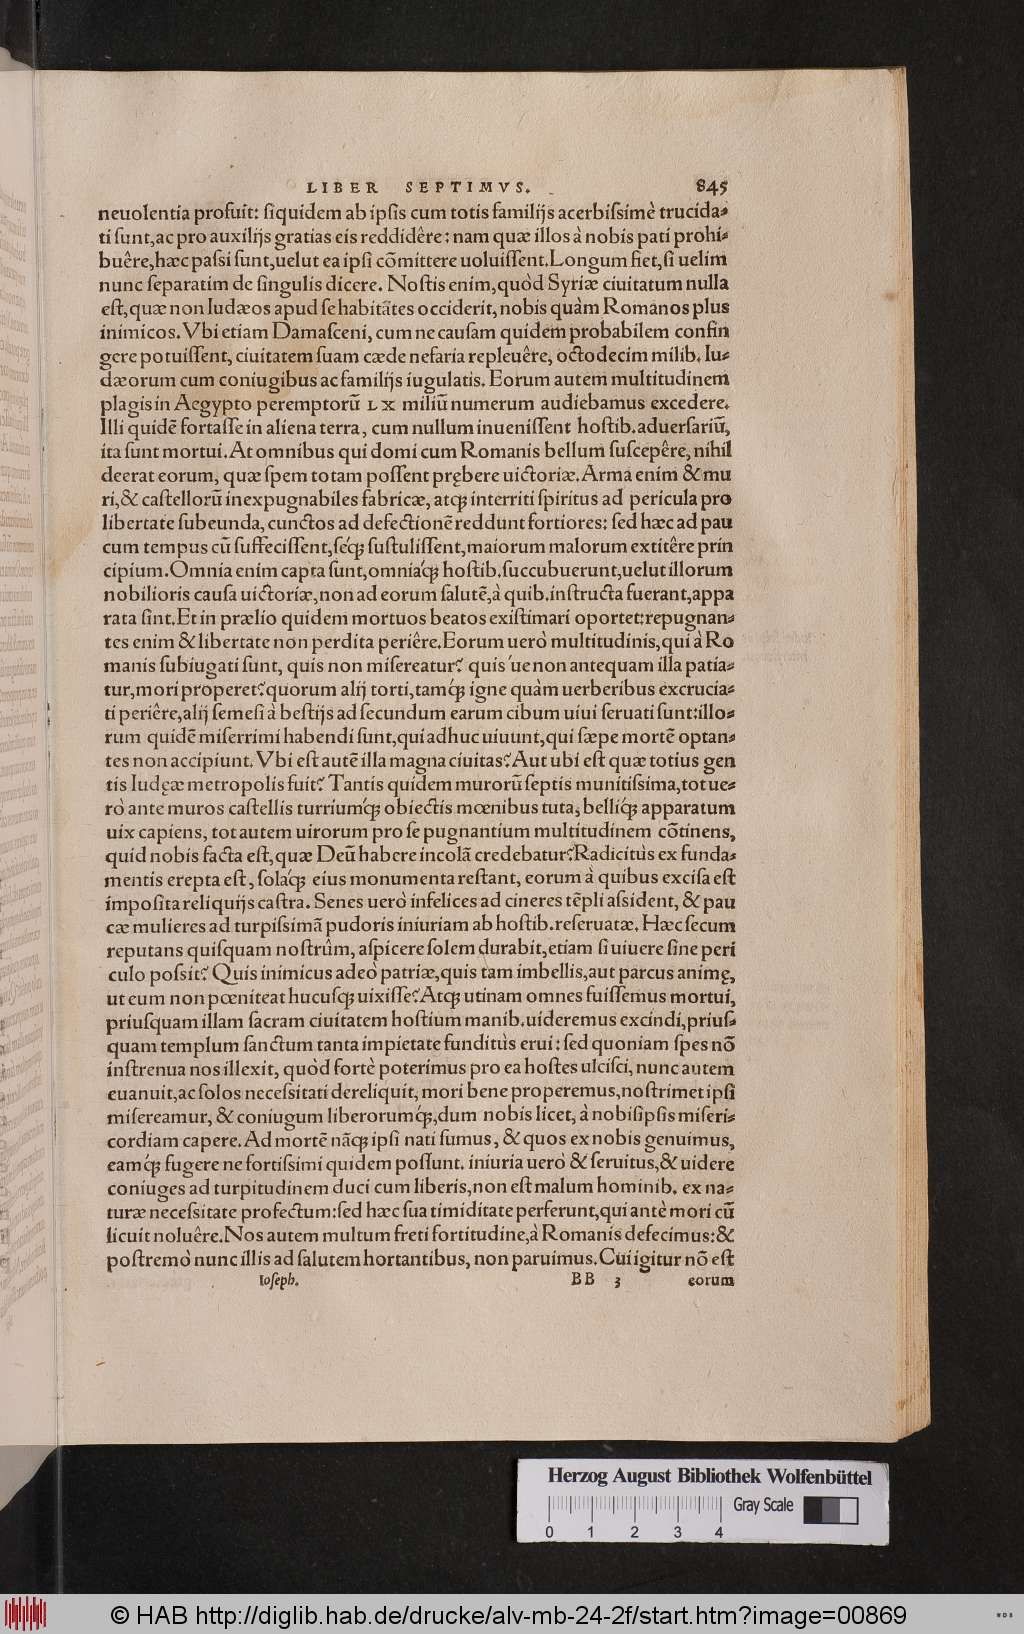 LIBER SEPTIMVS. 845
neuolentia profuit: ſiquidem ab ipſis cum totis familijs acerbiſsimè trucida-
ti ſunt, ac pro auxilijs gratias eis reddidêre: nam quæ illos à nobis pati prohi-
buêre, hæc paſsi ſunt, uelut ea ipſi cõmittere uoluiſſent. Longum fiet, ſi uelim
nunc ſeparatim de ſingulis dicere. Noſtis enim, quòd Syriæ ciuitatum nulla
eſt, quæ non Iudæos apud ſe habitãtes occiderit, nobis quàm Romanos plus
inimicos. Vbi etiam Damaſceni, cum ne cauſam quidem probabilem confin
gere potuiſſent, ciuitatem ſuam cæde nefaria repleuêre, octodecim milib. Iu-
dæorum cum coniugibus ac familijs iugulatis. Eorum autem multitudinem
plagis in Aegypto peremptorũ LX miliũ numerum audiebamus excedere.
Illi quidẽ fortaſſe in aliena terra, cum nullum inueniſſent hoſtib. aduerſariũ,
ita ſunt mortui. At omnibus qui domi cum Romanis bellum ſuſcepêre, nihil
deerat eorum, quæ ſpem totam poſſent prębere uictoriæ. Arma enim & mu
ri, & caſtellorũ inexpugnabiles fabricæ, atq; interriti ſpiritus ad pericula pro
libertate ſubeunda, cunctos ad defectionẽ reddunt fortiores: ſed hæc ad pau
cum tempus cũ ſuffeciſſent, ſéq; ſuſtuliſſent, maiorum malorum extitêre prin
cipium. Omnia enim capta ſunt, omniáq; hoſtib. ſuccubuerunt, uelut illorum
nobilioris cauſa uictoriæ, non ad eorum ſalutẽ, à quib. inſtructa fuerant, appa
rata ſint. Et in prælio quidem mortuos beatos exiſtimari oportet: repugnan-
tes enim & libertate non perdita periêre. Eorum uerò multitudinis, qui à Ro
manis ſubiugati ſunt, quis non miſereatur? quis ́ue non antequam illa patia-
tur, mori properet? quorum alij torti, tamq́; igne quàm uerberibus excrucia-
ti periêre, alij ſemeſi à beſtijs ad ſecundum earum cibum uiui ſeruati ſunt: illo-
rum quidẽ miſerrimi habendi ſunt, qui adhuc uiuunt, qui ſæpe mortẽ optan-
tes non accipiunt. Vbi eſt autẽ illa magna ciuitas? Aut ubi eſt quæ totius gen
tis Iudęæ metropolis fuit? Tantis quidem murorũ ſeptis munitiſsima, tot ue-
rò ante muros caſtellis turriumq́; obiectis mœnibus tuta, belliq́; apparatum
uix capiens, tot autem uirorum pro ſe pugnantium multitudinem cõtinens,
quid nobis facta eſt, quæ Deũ habere incolã credebatur? Radicitùs ex funda-
mentis erepta eſt, ſoláq; eius monumenta reſtant, eorum à quibus exciſa eſt
impoſita reliquijs caſtra. Senes uerò infelices ad cineres tẽpli aſsident, & pau
cæ mulieres ad turpiſsimã pudoris iniuriam ab hoſtib. reſeruatæ. Hæc ſecum
reputans quiſquam noſtrûm, aſpicere ſolem durabit, etiam ſi uiuere ſine peri
culo poſsit? Quis inimicus adeò patriæ, quis tam imbellis, aut parcus animę,
ut eum non pœniteat hucuſq; uixiſſe? Atq; utinam omnes fuiſſemus mortui,
priuſquam illam ſacram ciuitatem hoſtium manib. uideremus excindi, priuſ-
quam templum ſanctum tanta impietate funditùs erui: ſed quoniam ſpes nõ
inſtrenua nos illexit, quòd fortè poterimus pro ea hoſtes ulciſci, nunc autem
euanuit, ac ſolos neceſsitati dereliquit, mori bene properemus, noſtrimet ipſi
miſereamur, & coniugum liberorumq́;, dum nobis licet, à nobiſipſis miſeri-
cordiam capere. Ad mortẽ nãq; ipſi nati ſumus, & quos ex nobis genuimus,
eamq́; fugere ne fortiſsimi quidem poſſunt. iniuria uerò & ſeruitus, & uidere
coniuges ad turpitudinem duci cum liberis, non eſt malum hominib. ex na-
turæ neceſsitate profectum: ſed hæc ſua timiditate perferunt, qui antè mori cũ
licuit noluêre. Nos autem multum freti fortitudine, à Romanis defecimus: &
poſtremò nunc illis ad ſalutem hortantibus, non paruimus. Cui igitur nõ eſt
Ioſeph. BB 3 eorum
Herzog August Bibliothek Wolfenbüttel
Gray Scale
0 1 2 3 4
© HAB http://diglib.hab.de/drucke/alv-mb-24-2f/start.htm?image=00869